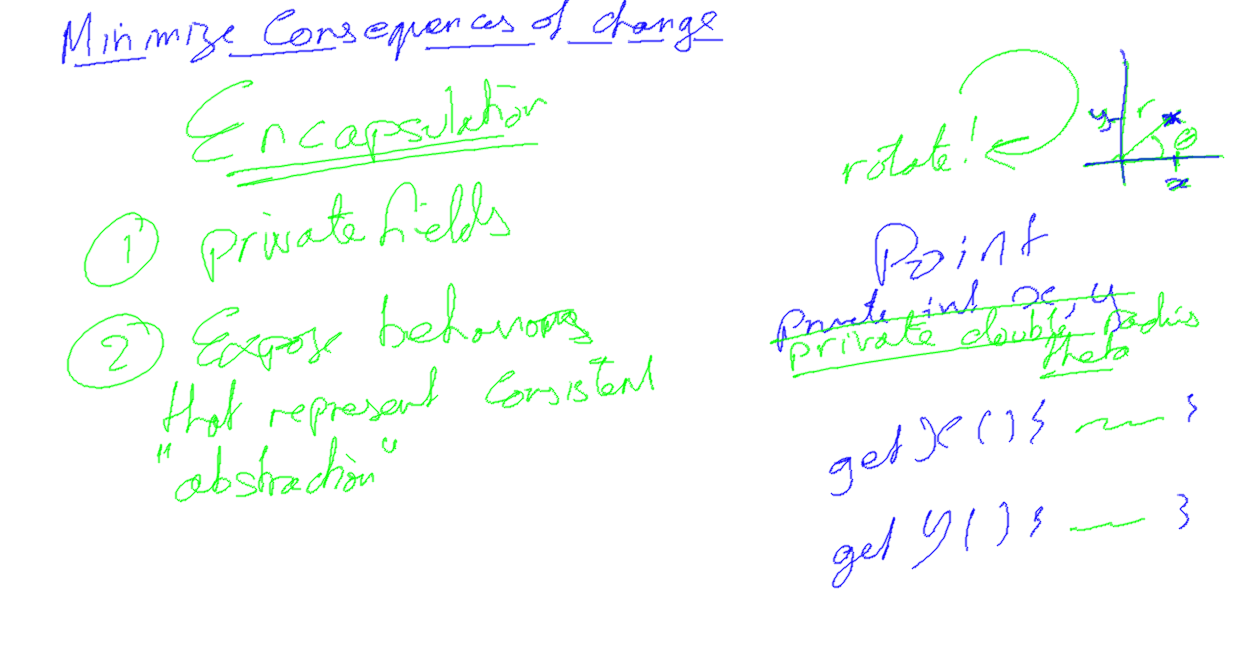 Minimize Consequences of change
Encapsulation
① private fields
② Expose behaviors
that represent consistent
"abstraction"
rotate!
y r x θ
x
Point
private int x, y
private double radius
theta
getX(){ }
getY(){ }